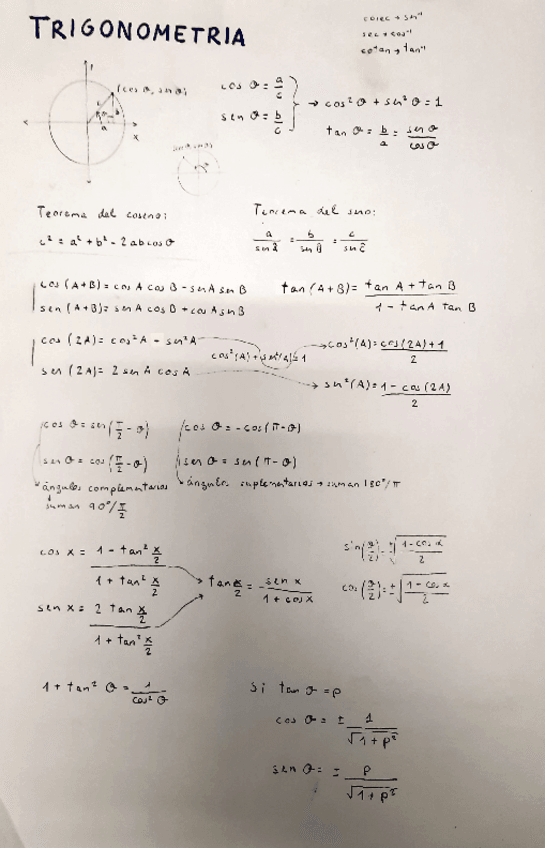 TRIGONOMETRIA
cosec → sen⁻¹
sec → cos⁻¹
cotan → tan⁻¹
(cos θ, sin θ)
cos θ = a/c
sen θ = b/c
→ cos² θ + sen² θ = 1
tan θ = b/a = sen θ/cos θ
a
b
c
x
Teorema del coseno:
c² = a² + b² - 2ab cos θ
Teorema del seno:
a/sen Â = b/sen B̂ = c/sen Ĉ
cos (A+B) = cos A cos B - sen A sen B
sen (A+B) = sen A cos B + cos A sen B
tan (A+B) = tan A + tan B / 1 - tan A tan B
cos (2A) = cos² A - sen² A
cos² (A) + sen² (A) = 1
→ cos² (A) = cos (2A) + 1 / 2
sen (2A) = 2 sen A cos A
→ sen² (A) = 1 - cos (2A) / 2
cos θ = sen (π/2 - θ)
cos θ = -cos (π - θ)
sen θ = cos (π/2 - θ)
sen θ = sen (π - θ)
ángulos complementarios
suman 90°/π/2
ángulos suplementarios → suman 180°/π
cos x = 1 - tan² x/2 / 1 + tan² x/2
sen x = 2 tan x/2 / 1 + tan² x/2
tan x/2 = sen x / 1 + cos x
sin (θ/2) = ± √1 - cos x / 2
cos (θ/2) = ± √1 - cos x / 2
1 + tan² θ = 1/cos² θ
Si tan θ = p
cos θ = ± 1/√1 + p²
sen θ = ± p/√1 + p²